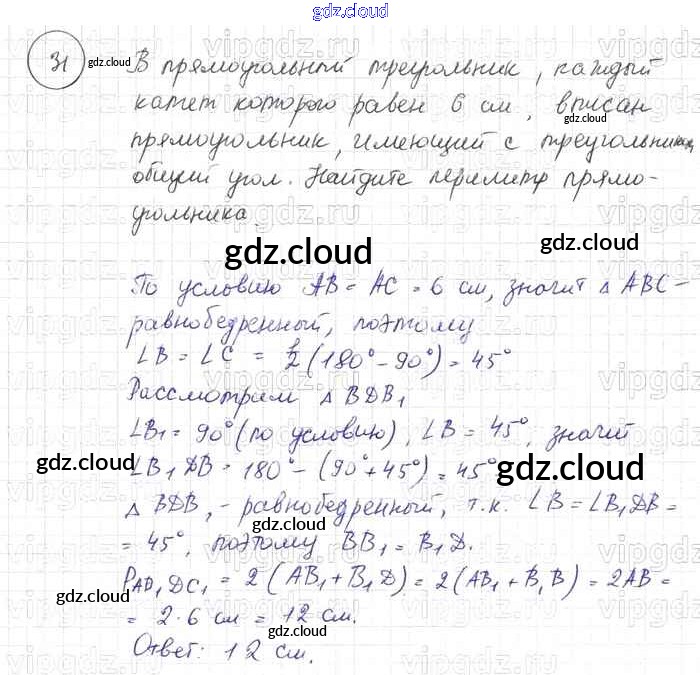 gdz.cloud
31 gdz.cloud В прямоугольный треугольник, каждый
катет которого равен 6 см, вписан
gdz.cloud
прямоугольник, имеющий с треугольником
общий угол. Найдите периметр прямо-
угольника.
gdz.cloud
gdz.cloud
По условию AB = AC = 6 см, значит △ ABC -
равнобедренный, поэтому
∠B = ∠C = 1/2 (180° - 90°) = 45°
Рассмотрим △ BDB₁
∠B₁ = 90° (по условию), ∠B = 45°, значит
gdz.cloud
∠B₁DB = 180° - (90° + 45°) = 45°
gdz.cloud
△ BDB₁ - равнобедренный, т.к. ∠B = ∠B₁DB =
gdz.cloud
= 45°, поэтому BB₁ = B₁D.
P AB₁DC₁ = 2 (AB₁ + B₁D) = 2 (AB₁ + B₁B) = 2AB =
gdz.cloud
gdz.cloud
= 2 · 6 см = 12 см.
gdz.cloud
Ответ: 12 см.
gdz.cloud